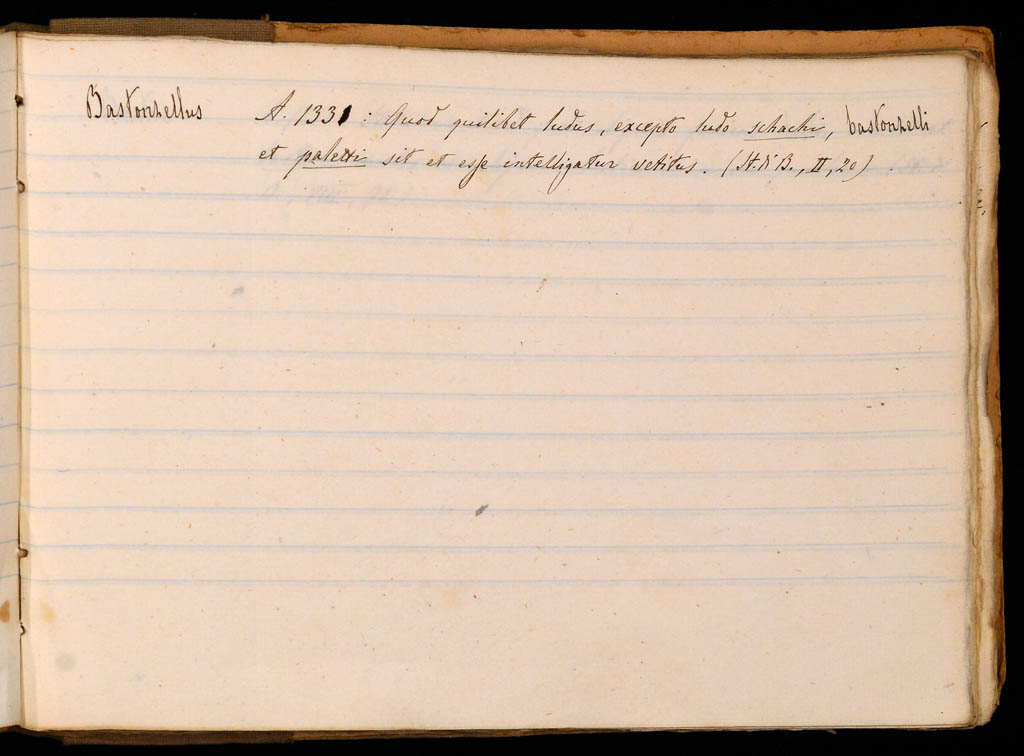 Bastonzellus A. 1331 : Quod quilibet ludus, excepto ludo schachi, bastonzelli
et paletti sit et esse intelligatur vetitus. (St. di B., II, 20)